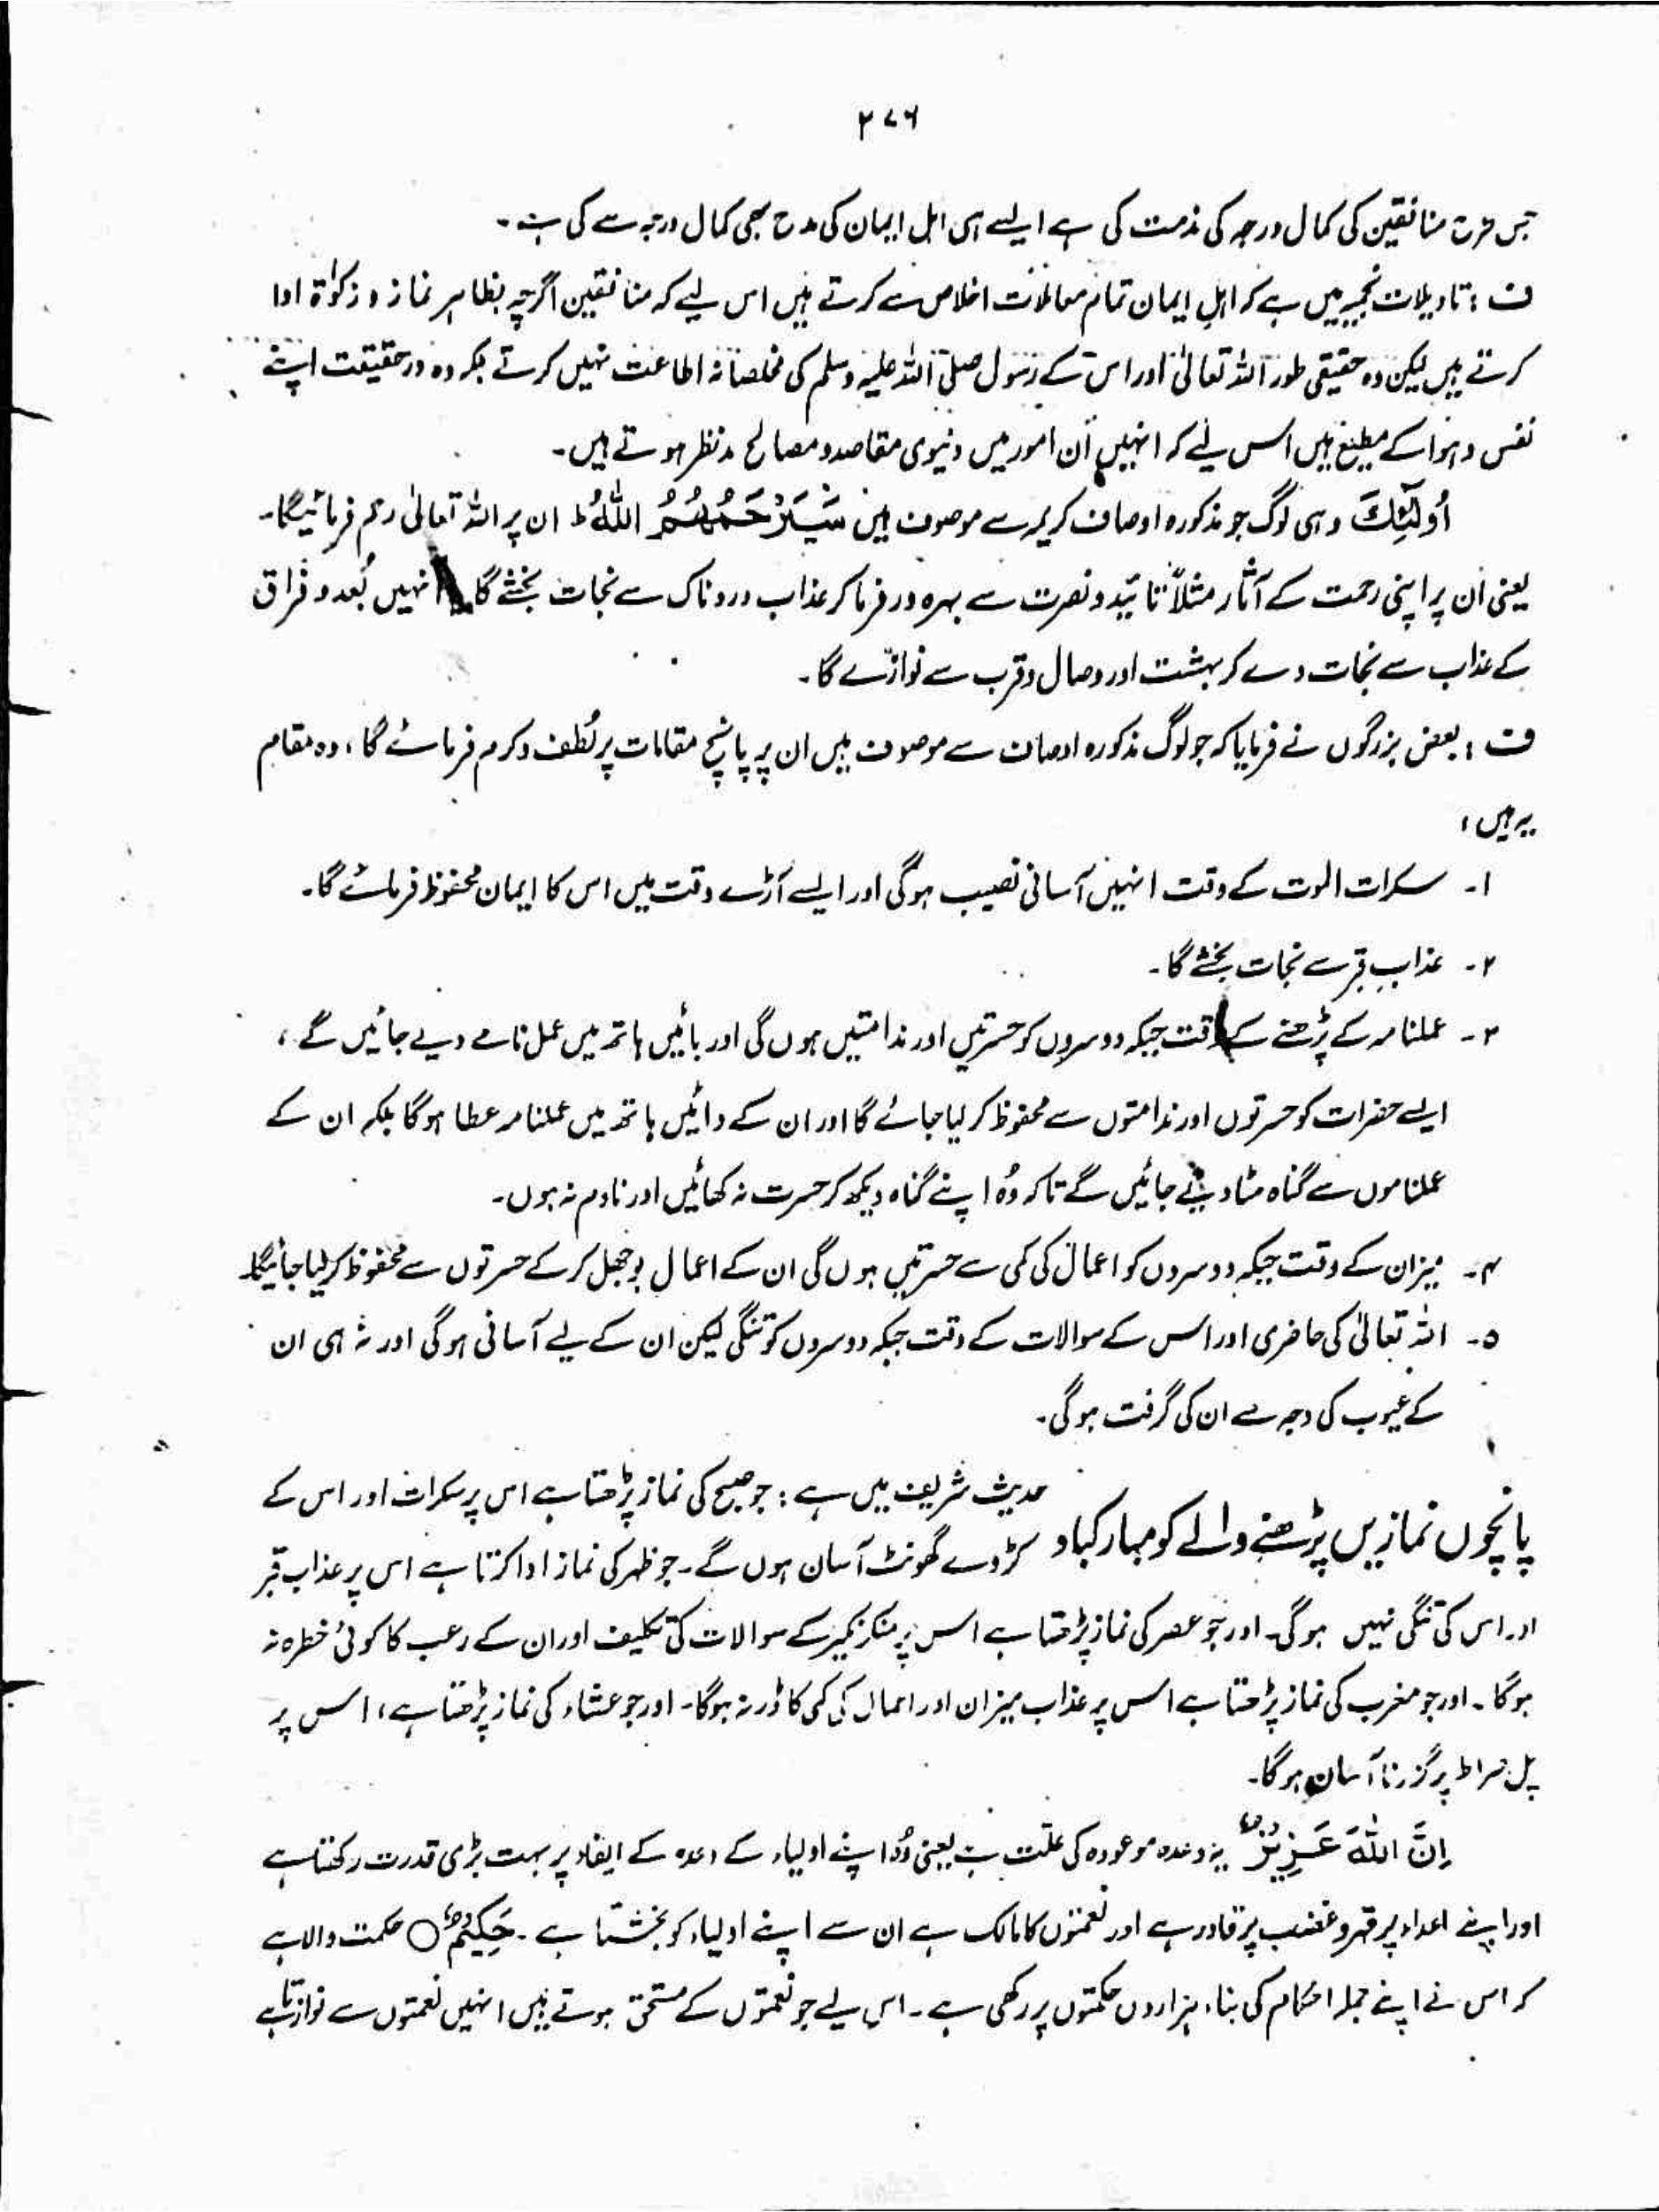 ۲۷۶
جس طرح منافقین کی کمال درجہ کی مذمت کی ہے ایسے ہی اہل ایمان کی مدح بھی کمال درجہ سے کی ہے۔
ف : تاویلات نجمیہ میں ہے کہ اہلِ ایمان تمام معاملات اخلاص سے کرتے ہیں اس لیے کہ منافقین اگرچہ بظاہر نماز و زکوٰۃ ادا
کرتے ہیں لیکن وہ حقیقی طور اللہ تعالیٰ اور اس کے رسول صلی اللہ علیہ وسلم کی مخلصانہ اطاعت نہیں کرتے بلکہ وہ درحقیقت اپنے
نفس و ہوا کے مطیع ہیں اس لیے کہ انہیں ان امور میں دنیوی مقاصد و مصالح مدنظر ہوتے ہیں۔
اُولٰٓئِكَ وہی لوگ جو مذکورہ اوصاف کریمہ سے موصوف ہیں سَيَرْحَمُهُمُ اللّٰهُ ط ان پر اللہ تعالیٰ رحم فرمائیگا۔
یعنی ان پر اپنی رحمت کے آثار مثلاً تائید و نصرت سے بہرہ ور فرما کر عذاب دردناک سے نجات بخشے گا انہیں بُعد و فراق
کے عذاب سے نجات دے کر بہشت اور وصال و قرب سے نوازے گا۔
ف : بعض بزرگوں نے فرمایا کہ جو لوگ مذکورہ اوصاف سے موصوف ہیں ان پر پانچ مقامات پر لُطف و کرم فرمائے گا ، وہ مقام
یہ ہیں :
۱۔ سکرات الموت کے وقت انہیں آسانی نصیب ہوگی اور ایسے آڑے وقت میں اس کا ایمان محفوظ فرمائے گا۔
۲۔ عذابِ قبر سے نجات بخشے گا۔
۳۔ عملنامہ کے پڑھنے کے وقت جبکہ دوسروں کو حسرتیں اور ندامتیں ہوں گی اور بائیں ہاتھ میں عمل نامے دیے جائیں گے ،
ایسے حضرات کو حسرتوں اور ندامتوں سے محفوظ کر لیا جائے گا اور ان کے دائیں ہاتھ میں عملنامہ عطا ہوگا بلکہ ان کے
عملناموں سے گناہ مٹا دیئے جائیں گے تاکہ وُہ اپنے گناہ دیکھ کر حسرت نہ کھائیں اور نادم نہ ہوں۔
۴۔ میزان کے وقت جبکہ دوسروں کو اعمال کی کمی سے حسرتیں ہوں گی ان کے اعمال بوجھل کر کے حسرتوں سے محفوظ کر لیا جائیگا۔
۵۔ اللہ تعالیٰ کی حاضری اور اس کے سوالات کے وقت جبکہ دوسروں کو تنگی لیکن ان کے لیے آسانی ہوگی اور نہ ہی ان
کے عیوب کی وجہ سے ان کی گرفت ہوگی۔
پانچوں نمازیں پڑھنے والے کو مبارکباد
حدیث شریف میں ہے : جو صبح کی نماز پڑھتا ہے اس پر سکرات اور اس کے
کڑوے گھونٹ آسان ہوں گے۔ جو ظہر کی نماز ادا کرتا ہے اس پر عذاب قبر
اور اس کی تنگی نہیں ہوگی۔ اور جو عصر کی نماز پڑھتا ہے اس پر منکر نکیر کے سوالات کی تکلیف اور ان کے رعب کا کوئی خطرہ نہ
ہوگا۔ اور جو مغرب کی نماز پڑھتا ہے اس پر عذاب میزان اور اعمال کی کمی کا ڈر نہ ہوگا۔ اور جو عشاء کی نماز پڑھتا ہے ، اس پر
پل صراط پر گزرنا آسان ہوگا۔
اِنَّ اللّٰهَ عَزِيْزٌ یہ وعدہ موعودہ کی علّت ہے یعنی وُہ اپنے اولیاء کے وعدہ کے ایفاء پر بہت بڑی قدرت رکھتا ہے
اور اپنے اعداء پر قہر و غضب پر قادر ہے اور نعمتوں کا مالک ہے ان سے اپنے اولیاء کو بخشتا ہے۔ حَكِيْمٌ ○ حکمت والا ہے
کہ اس نے اپنے جملہ احکام کی بناء ہزاروں حکمتوں پر رکھی ہے۔ اس لیے جو نعمتوں کے مستحق ہوتے ہیں انہیں نعمتوں سے نوازتا ہے